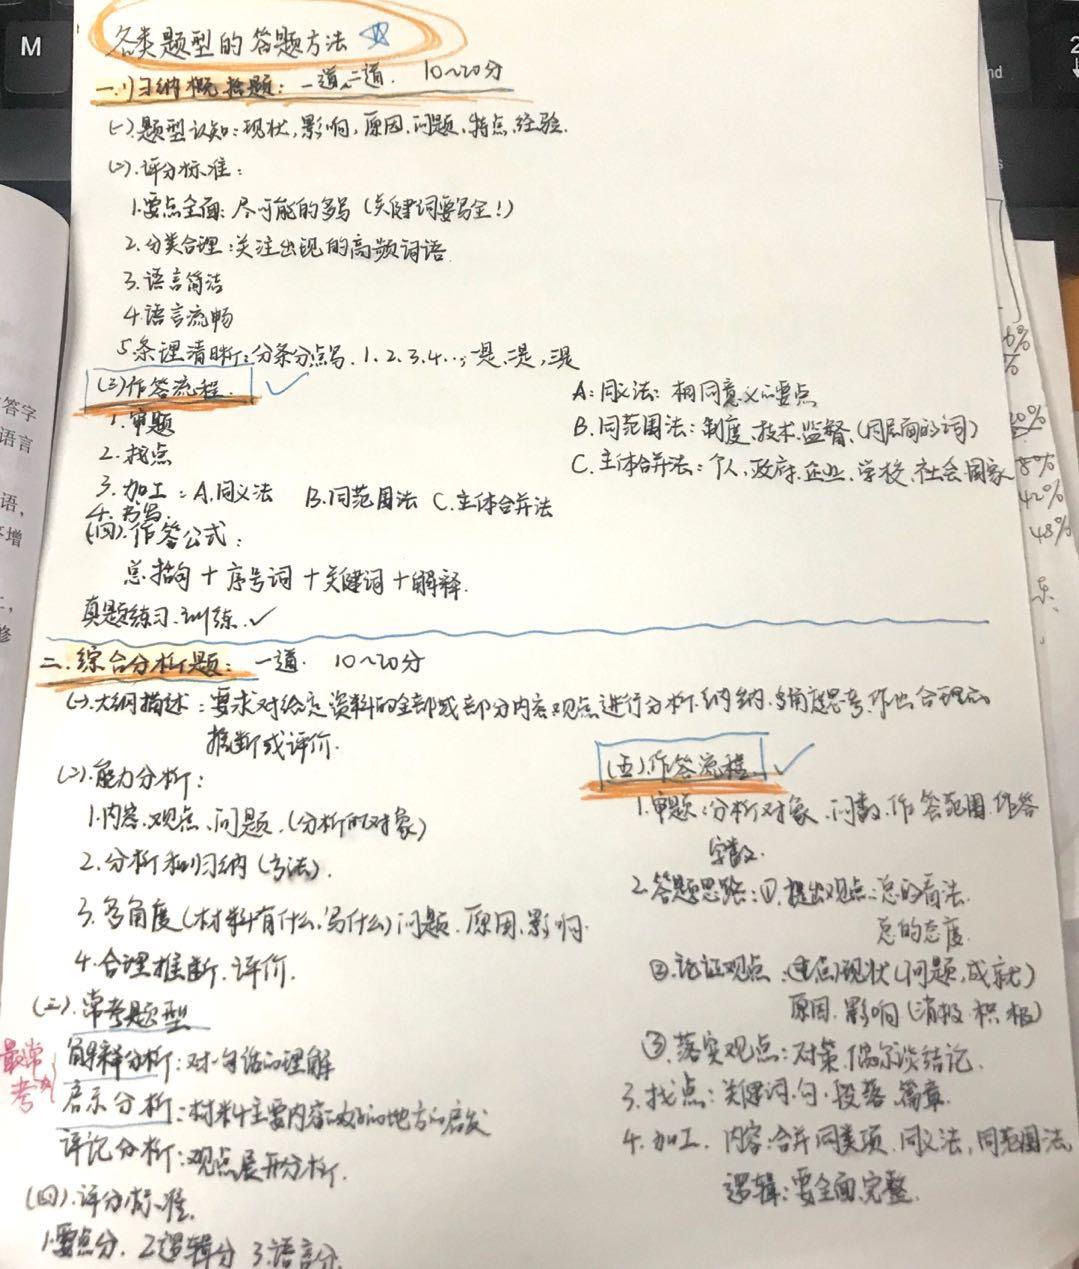 M
各类题型的答题方法
一.归纳概括题: 一道、二道. 10~20分
(一).题型认知:现状,影响,原因.问题.特点.经验.
(二).评分标准:
1.要点全面:尽可能的多写(关键词要写全!)
2.分类合理:关注出现的高频词语.
3.语言简洁
4.语言流畅
5.条理清晰:分条分点写.1、2、3、4…;一是、二是,三是
(三)作答流程.
1.审题
2.找点
3.加工:A.同义法 B.同范围法 C.主体合并法
4.书写.
A:同义法:相同意义的要点
B.同范围法:制度、技术、监督、(同层面的词)
C.主体合并法:个人、政府、企业、学校、社会、国家
(四).作答公式:
总括句+序号词+关键词+解释.
真题练习.训练.✓
二.综合分析题: 一道. 10~20分
(一).大纲描述:要求对给定资料的全部或部分内容、观点进行分析、归纳.多角度思考.作出合理的
推断或评价.
(二).能力分析:
1.内容、观点、问题.(分析的对象)
2.分析和归纳(方法).
3.多角度(材料有什么.写什么)问题.原因.影响.
4.合理推断.评价.
(三).常考题型
最常考
解释分析:对一句话的理解
启示分析:材料主要内容的好的地方的启发
评论分析:观点展开分析.
(四).评分标准.
1.要点分. 2.逻辑分 3.语言分
(五).作答流程.
1.审题:分析对象、问数.作答范围.作答
字数.
2.答题思路:①.提出观点:总的看法.
总的态度.
②.论证观点:(重点)现状(问题,成就)
原因.影响(消极.积极)
③.落实观点:对策.偶尔谈结论.
3.找点:关键词.句.段落.篇章.
4.加工. 内容:合并同类项.同义法,同范围法
逻辑:要全面.完整.
答字
语言
语,
增
修
nd
8%
42%
48%